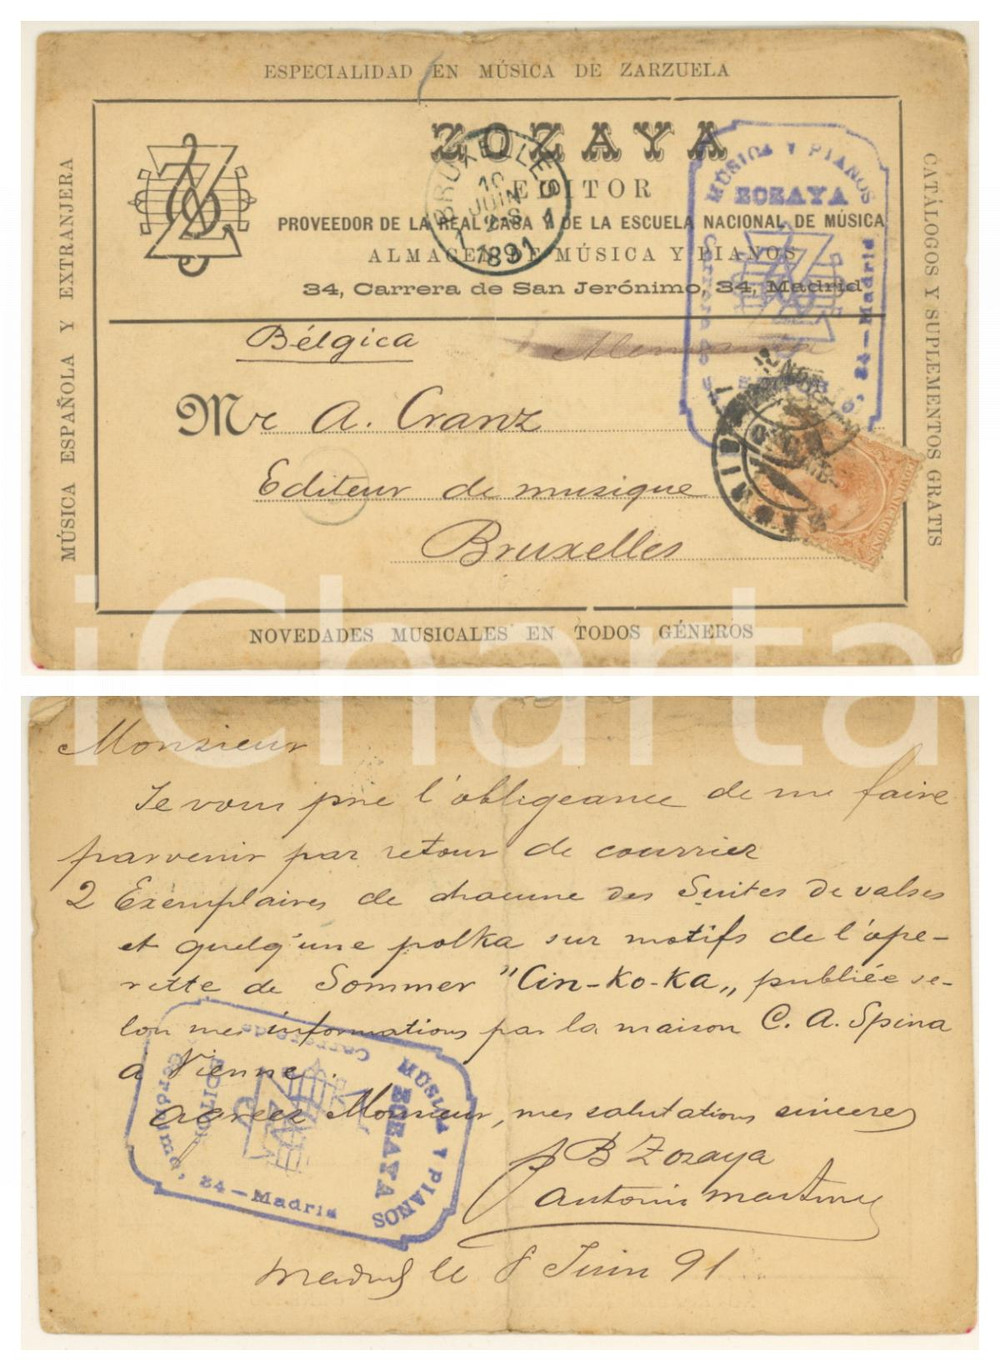 ESPECIALIDAD EN MÚSICA DE ZARZUELA
MÚSICA ESPAÑOLA Y EXTRANJERA
CATÁLOGOS Y SUPLEMENTOS GRATIS
ZOZAYA
EDITOR
PROVEEDOR DE LA REAL CASA Y DE LA ESCUELA NACIONAL DE MÚSICA
ALMACEN DE MÚSICA Y PIANOS
34, Carrera de San Jerónimo, 34, Madrid
BRUXELLES
10
JUIN
1891
MÚSICA Y PIANOS
ZOZAYA
Carrera de S.
34-Madrid
Bélgica
Alemania
Mr A. Cranz
Editeur de musique
Bruxelles
MADRID
NOVEDADES MUSICALES EN TODOS GÉNEROS
iCharta
Monsieur
Je vous prie l'obligeance de me faire
parvenir par retour de courrier
2 Exemplaires de chacune des Suites de valses
et quelq'une polka sur motifs de l'ope-
rette de Sommer "Cin-Ko-Ka„ publiée se-
lon mes informations par la maison C. A. Spina
a Vienne.
Agréez Monsieur, mes salutations sinceres
p B Zozaya
Antonio Martinez
Madrid le 8 Juin 91
MÚSICA Y PIANOS
ZOZAYA
EDITOR
Carrera de S.
Gerónimo, 34-Madrid